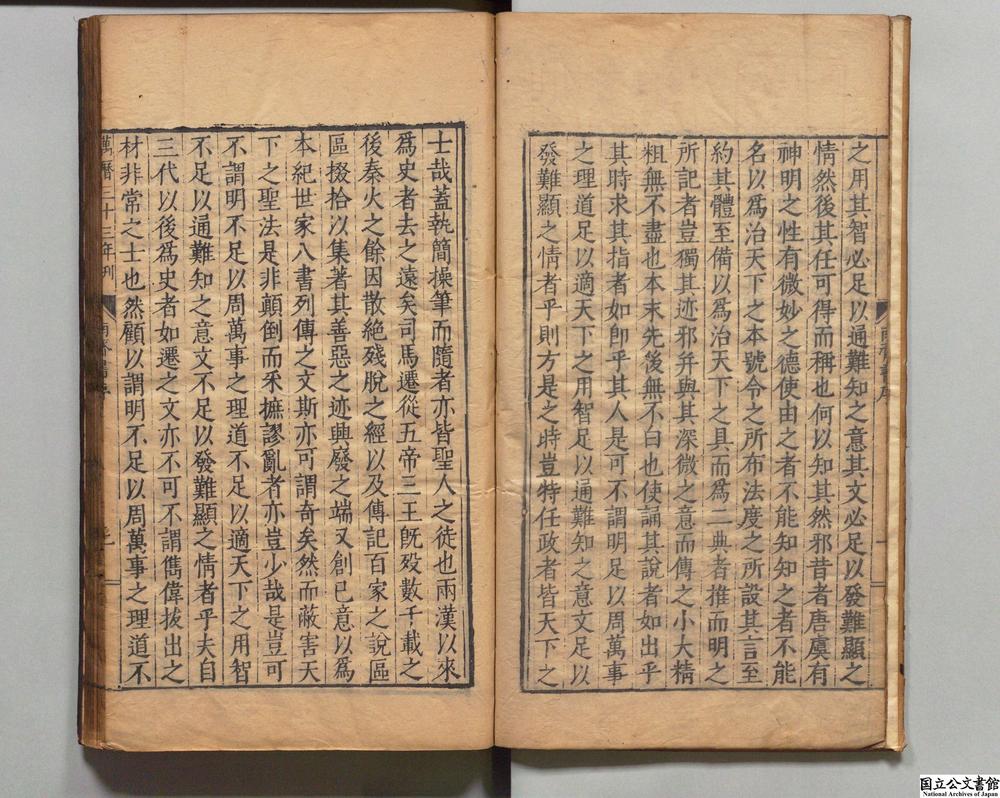 之用其智必足以通難知之意其文必足以發難顯之
情然後其任可得而稱也何以知其然邪昔者唐虞有
神明之性有微妙之德使由之者不能知知之者不能
名以爲治天下之本號令之所布法度之所設其言至
約其體至備以爲治天下之具而爲二典者推而明之
所記者豈獨其迹邪并與其深微之意而傳之小大精
粗無不盡也本末先後無不白也使誦其說者如出乎
其時求其指者如即乎其人是可不謂明足以周萬事
之理道足以適天下之用智足以通難知之意文足以
發難顯之情者乎則方是之時豈特任政者皆天下之
士哉蓋執簡操筆而隨者亦皆聖人之徒也兩漢以來
爲史者去之遠矣司馬遷從五帝三王旣歿數千載之
後秦火之餘因散絶殘脫之經以及傳記百家之說區
區掇拾以集著其善惡之迹興廢之端又創已意以爲
本紀世家八書列傳之文斯亦可謂奇矣然而蔽害天
下之聖法是非顛倒而采摭謬亂者亦豈少哉是豈可
不謂明不足以周萬事之理道不足以適天下之用智
不足以通難知之意文不足以發難顯之情者乎夫自
三代以後爲史者如遷之文亦不可不謂雋偉拔出之
材非常之士也然顧以謂明不足以周萬事之理道不
萬曆三十三年刊
国立公文書館
National Archives of Japan